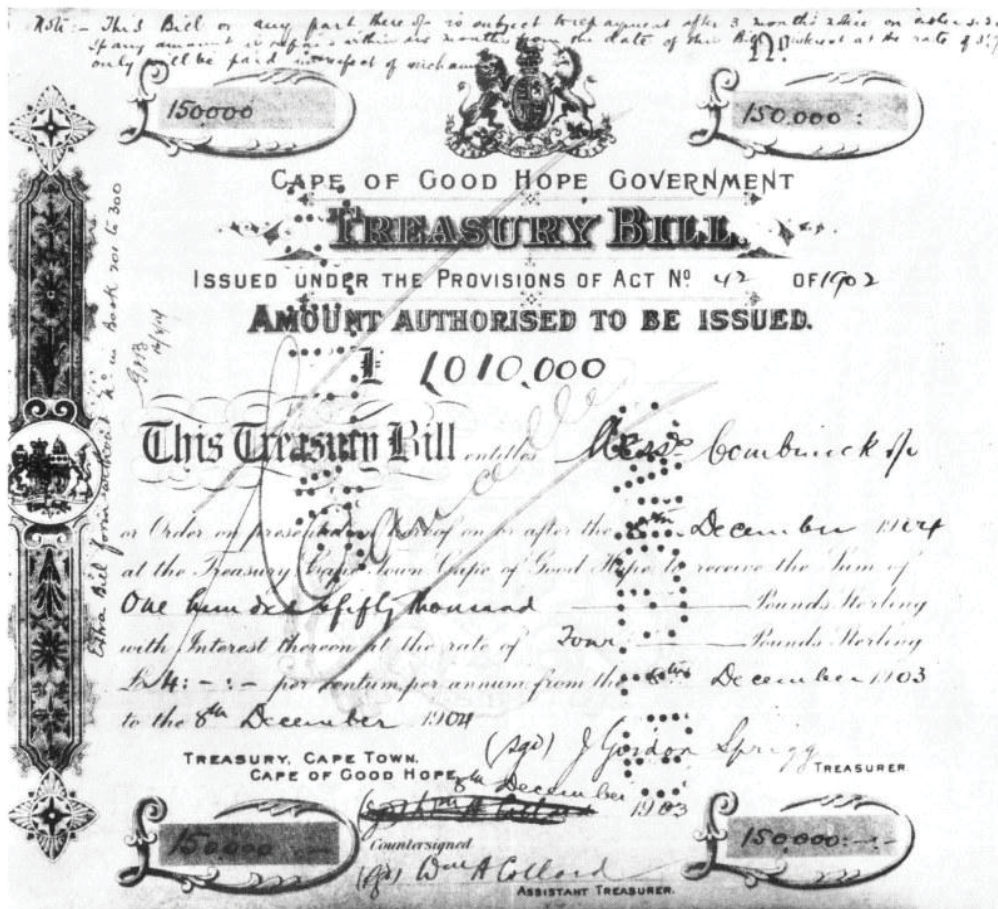 Note :- This Bill or any part thereof is subject to repayment after 3 months notice on either side
If any amount is repaid within six months from the date of this Bill interest at the rate of 3%
only will be paid in respect of
No.
150000
150.000 :
CAPE OF GOOD HOPE GOVERNMENT
TREASURY BILL.
ISSUED UNDER THE PROVISIONS OF ACT No. 42 OF 1902
AMOUNT AUTHORISED TO BE ISSUED.
£ 1010.000
This Treasury Bill entitles Messrs Combrinck &/o
or Order on presentation hereof on or after the 8th December 1904
at the Treasury Cape Town Cape of Good Hope to receive the Sum of
One hundred & fifty thousand Pounds Sterling
with Interest thereon at the rate of Four Pounds Sterling
£4: - : - per centum per annum from the 8th December 1903
to the 8th December 1904
(sgd) J Gordon Sprigg
TREASURER.
TREASURY, CAPE TOWN.
CAPE OF GOOD HOPE,
8th December 1903
Countersigned
(sgd) Wm A Collard
ASSISTANT TREASURER.
150000 -
150.000: -. -
Extra Bill form without No in Book 201 to 300
Cancelled